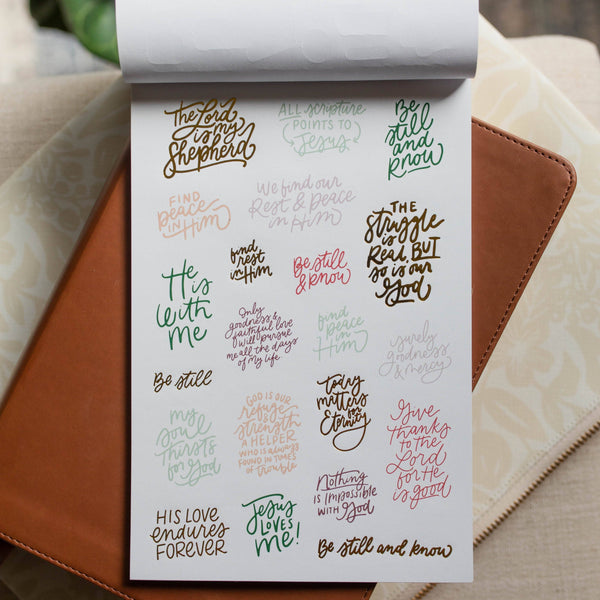 The Lord
is my
Shepherd
ALL scripture
POINTS TO
Jesus
Be
still
and
know
FIND
peace
in Him
We find our
Rest & Peace
in Him
THE
Struggle
is
Real, BUT
so is our
God
He
is
with
me
find
rest
in Him
Be still
& know
Only
goodness &
faithful love
will pursue
me all the days
of my life
find
peace
in
Him
surely
goodness
& mercy
Be still
my
soul
thirsts
for God
GOD IS OUR
refuge &
strength
A HELPER
WHO IS always
FOUND IN TIMES
of trouble
today
matters
for
Eternity
Give
thanks
to the
Lord
for He
is good
HIS LOVE
endures
FOREVER
Jesus
LOVES
me!
Nothing
IS IMPOSSIBLE
WITH God
Be still and know